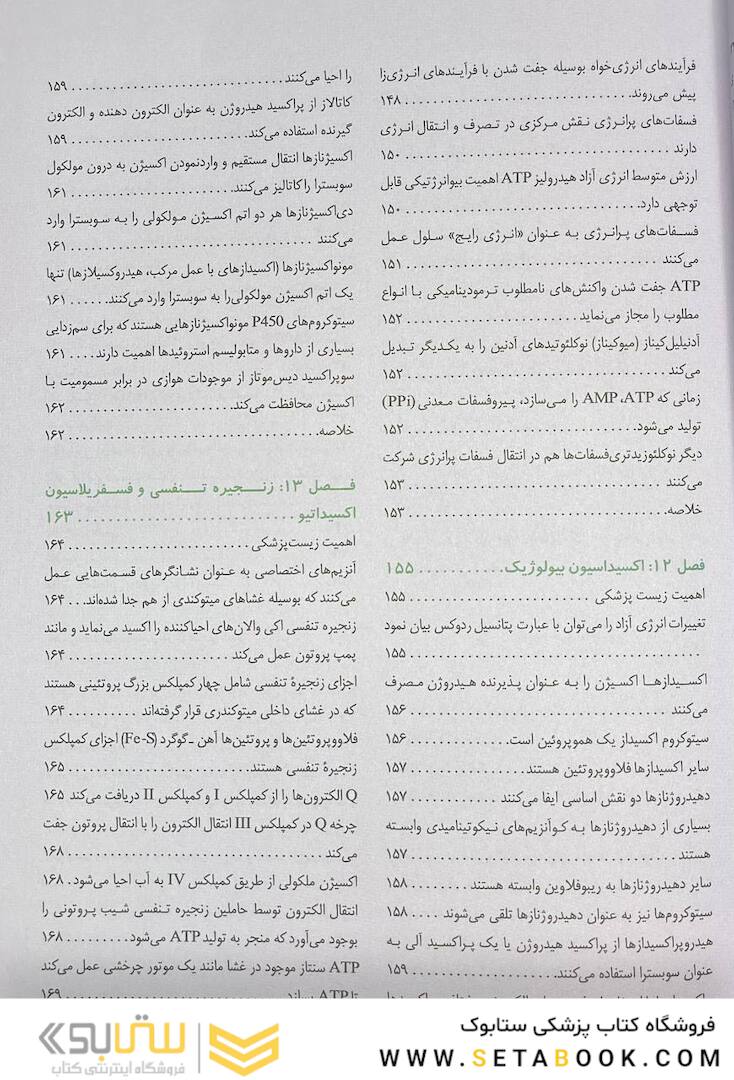 فرآیندهای انرژی‌خواه بوسیله جفت شدن با فرآیندهای انرژی‌زا
پیش می‌روند. ۱۴۸
فسفات‌های پرانرژی نقش مرکزی در تصرف و انتقال انرژی
دارند ۱۵۰
ارزش متوسط انرژی آزاد هیدرولیز ATP اهمیت بیوانرژتیکی قابل
توجهی دارد. ۱۵۰
فسفات‌های پرانرژی به عنوان «انرژی رایج» سلول عمل
می‌کنند ۱۵۱
ATP جفت شدن واکنش‌های نامطلوب ترمودینامیکی با انواع
مطلوب را مجاز می‌نماید ۱۵۲
آدنیلیل‌کیناز (میوکیناز) نوکلئوتیدهای آدنین را به یکدیگر تبدیل
می‌کند ۱۵۲
زمانی که AMP ،ATP را می‌سازد، پیروفسفات معدنی (PPi)
تولید می‌شود. ۱۵۲
دیگر نوکلئوزیدتری‌فسفات‌ها هم در انتقال فسفات پرانرژی شرکت
می‌کنند ۱۵۳
خلاصه. ۱۵۳
فصل ۱۲: اکسیداسیون بیولوژیک. ۱۵۵
اهمیت زیست پزشکی ۱۵۵
تغییرات انرژی آزاد را می‌توان با عبارت پتانسیل ردوکس بیان نمود
۱۵۵
اکسیدازها اکسیژن را به عنوان پذیرنده هیدروژن مصرف
می‌کنند ۱۵۶
سیتوکروم اکسیداز یک هموپروئین است. ۱۵۶
سایر اکسیدازها فلاووپروتئین هستند. ۱۵۷
دهیدروژنازها دو نقش اساسی ایفا می‌کنند ۱۵۷
بسیاری از دهیدروژنازها به کوآنزیم‌های نیکوتینامیدی وابسته
هستند ۱۵۷
سایر دهیدروژنازها به ریبوفلاوین وابسته هستند ۱۵۸
سیتوکروم‌ها نیز به عنوان دهیدروژنازها تلقی می‌شوند ۱۵۸
هیدروپراکسیدازها از پراکسید هیدروژن یا یک پراکسید آلی به
عنوان سوبسترا استفاده می‌کنند. ۱۵۹
را احیا می‌کنند ۱۵۹
کاتالاز از پراکسید هیدروژن به عنوان الکترون دهنده و الکترون
گیرنده استفاده می‌کند. ۱۵۹
اکسیژنازها انتقال مستقیم و واردنمودن اکسیژن به درون مولکول
سوبسترا را کاتالیز می‌کنند. ۱۶۱
دی‌اکسیژنازها هر دو اتم اکسیژن مولکولی را به سوبسترا وارد
می‌کنند ۱۶۱
مونواکسیژنازها (اکسیدازهای با عمل مرکب، هیدروکسیلازها) تنها
یک اتم اکسیژن مولکولی‌را به سوبسترا وارد می‌کنند. ۱۶۱
سیتوکروم‌های P450 مونواکسیژنازهایی هستند که برای سم‌زدایی
بسیاری از داروها و متابولیسم استروئیدها اهمیت دارند. ۱۶۱
سوپراکسید دیس‌موتاز از موجودات هوازی در برابر مسمومیت با
اکسیژن محافظت می‌کند. ۱۶۲
خلاصه. ۱۶۲
فصل ۱۳: زنجیره تنفسی و فسفریلاسیون
اکسیداتیو ۱۶۳
اهمیت زیست‌پزشکی ۱۶۴
آنزیم‌های اختصاصی به عنوان نشانگرهای قسمت‌هایی عمل
می‌کنند که بوسیله غشاهای میتوکندی از هم جدا شده‌اند. ۱۶۴
زنجیره تنفسی اکی والان‌های احیاکننده را اکسید می‌نماید و مانند
پمپ پروتون عمل می‌کند ۱۶۴
اجزای زنجیرۀ تنفسی شامل چهار کمپلکس بزرگ پروتئینی هستند
که در غشای داخلی میتوکندری قرار گرفته‌اند ۱۶۴
فلاووپروتئین‌ها و پروتئین‌ها آهن ـ گوگرد (Fe-S) اجزای کمپلکس
زنجیرۀ تنفسی هستند. ۱۶۵
Q الکترون‌ها را از کمپلکس I و کمپلکس II دریافت می‌کند ۱۶۵
چرخه Q در کمپلکس III انتقال الکترون را با انتقال پروتون جفت
می‌کند ۱۶۸
اکسیژن ملکولی از طریق کمپلکس IV به آب احیا می‌شود. ۱۶۸
انتقال الکترون توسط حاملین زنجیره تنفسی شیب پروتونی را
بوجود می‌آورد که منجر به تولید ATP می‌شود. ۱۶۸
ATP سنتاز موجود در غشا مانند یک موتور چرخشی عمل می‌کند
تا ATP بسازد ۱۶۹
فروشگاه کتاب پزشکی ستابوک
WWW.SETABOOK.COM
ستابوک
فروشگاه اینترنتی کتاب